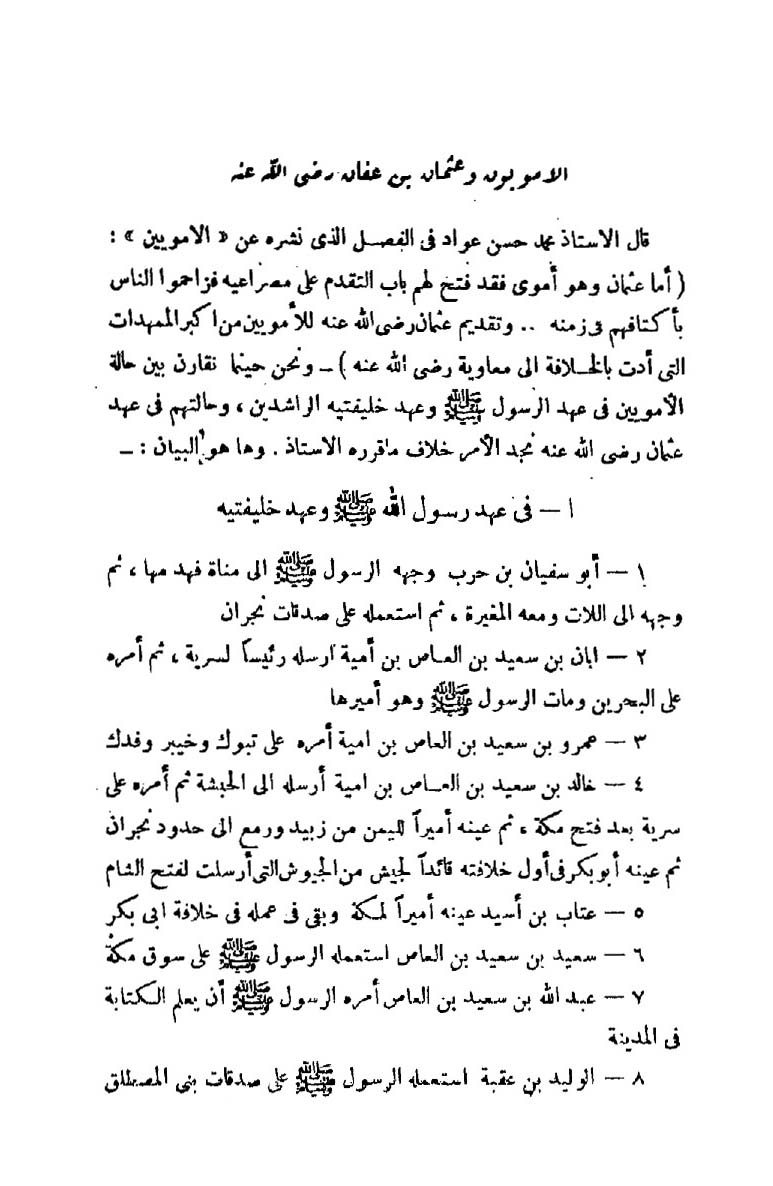 الامويون وعثمان بن عفان رضى الله عنه
قال الاستاذ محمد حسن عواد فى الفصل الذى نشره عن « الامويين » :
( أما عثمان وهو أموى فقد فتح لهم باب التقدم على مصراعيه فزاحموا الناس
بأكتافهم فى زمنه .. وتقديم عثمان رضى الله عنه للأمويين من اكبر الممهدات
التى أدت بالخلافة الى معاوية رضى الله عنه ) ـ ونحن حينما نقارن بين حالة
الأمويين فى عهد الرسول ﷺ وعهد خليفتيه الراشدين ، وحالتهم فى عهد
عثمان رضى الله عنه نجد الأمر خلاف ماقرره الاستاذ . وها هو البيان : ـ
ا — فى عهد رسول الله ﷺ وعهد خليفتيه
١ — أبو سفيان بن حرب وجهه الرسول ﷺ الى مناة فهدمها ، ثم
وجهه الى اللات ومعه المغيرة ، ثم استعمله على صدقات نجران
٢ — ابان بن سعيد بن العاص بن أمية ارسله رئيساً لسرية ، ثم أمره
على البحرين ومات الرسول ﷺ وهو أميرها
٣ — عمرو بن سعيد بن العاص بن امية أمره على تبوك وخيبر وفدك
٤ — خالد بن سعيد بن العاص بن امية أرسله الى الحبشة ثم أمره على
سرية بعد فتح مكة ، ثم عينه أميراً لليمن من زبيد ورمع الى حدود نجران
ثم عينه أبو بكر فى أول خلافته قائداً لجيش من الجيوش التى أرسلت لفتح الشام
٥ — عتاب بن أسيد عينه أميراً لمكة وبقى فى عمله فى خلافة ابى بكر
٦ — سعيد بن سعيد بن العاص استعمله الرسول ﷺ على سوق مكة
٧ — عبد الله بن سعيد بن العاص أمره الرسول ﷺ أن يعلم الكتابة
فى المدينة
٨ — الوليد بن عقبة استعمله الرسول ﷺ على صدقات بنى المصطلق